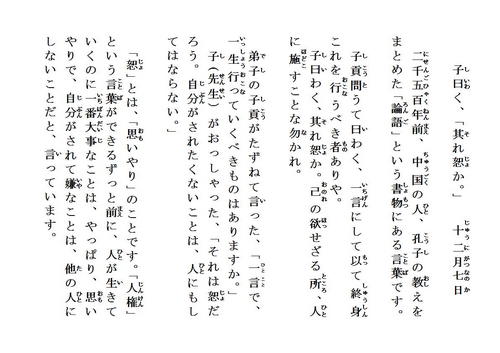 子曰く、「其れ恕か。」　十二月七日
二千五百年前、中国の人、孔子の教えを
まとめた「論語」という書物にある言葉です。
子貢問うて曰わく、一言にして以て終身
これを行うべき者ありや。
子曰わく、其れ恕か。己の欲せざる所、人
に施すことな勿かれ。
弟子の子貢がたずねて言った、「一言で、
一生行っていくべきものはありますか。」
子（先生）がおっしゃった、「それは恕だ
ろう。自分がされたくないことは、人にもし
てはならない。」
「恕」とは、「思いやり」のことです。「人権」
という言葉ができるずっと前に、人が生きて
いくのに一番大事なことは、やっぱり、思い
やりで、自分がされて嫌なことは、他の人に
しないことだと、言っています。